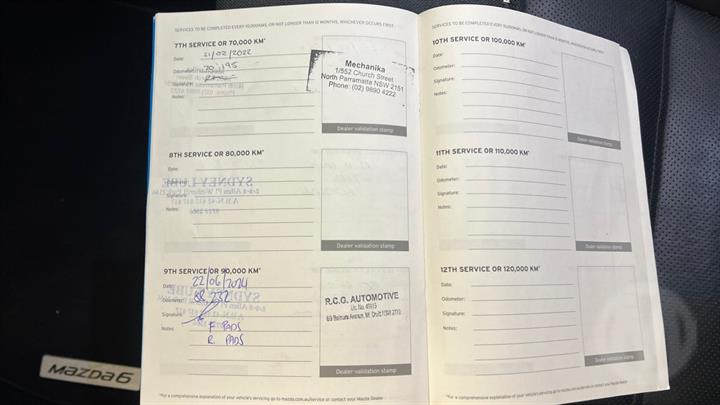 SERVICES TO BE COMPLETED EVERY 10,000KMS, OR NOT LONGER THAN 12 MONTHS, WHICHEVER OCCURS FIRST.
7TH SERVICE OR 70,000 KM*
Date: 21/02/2022
Odometer: 70,195
Signature:
Notes:
Mechanika
1/552 Church Street
North Parramatta NSW 2151
Phone: (02) 9890 4222
Dealer validation stamp
8TH SERVICE OR 80,000 KM*
Date:
Odometer:
Signature:
Notes:
SYDNEY LUBE
Dealer validation stamp
9TH SERVICE OR 90,000 KM*
Date: 22/06/2024
Odometer: 88,232
Signature:
Notes: F PADS
R PADS
SYDNEY LUBE
R.C.G. AUTOMOTIVE
Dealer validation stamp
*For a comprehensive explanation of your vehicle's servicing go to mazda.com.au/service or contact your Mazda Dealer
SERVICES TO BE COMPLETED EVERY 10,000KMS, OR NOT LONGER THAN 12 MONTHS, WHICHEVER OCCURS FIRST.
10TH SERVICE OR 100,000 KM*
Date:
Odometer:
Signature:
Notes:
Dealer validation stamp
11TH SERVICE OR 110,000 KM*
Date:
Odometer:
Signature:
Notes:
Dealer validation stamp
12TH SERVICE OR 120,000 KM*
Date:
Odometer:
Signature:
Notes:
Dealer validation stamp
*For a comprehensive explanation of your vehicle's servicing go to mazda.com.au/service or contact your Mazda Dealer
mazda6